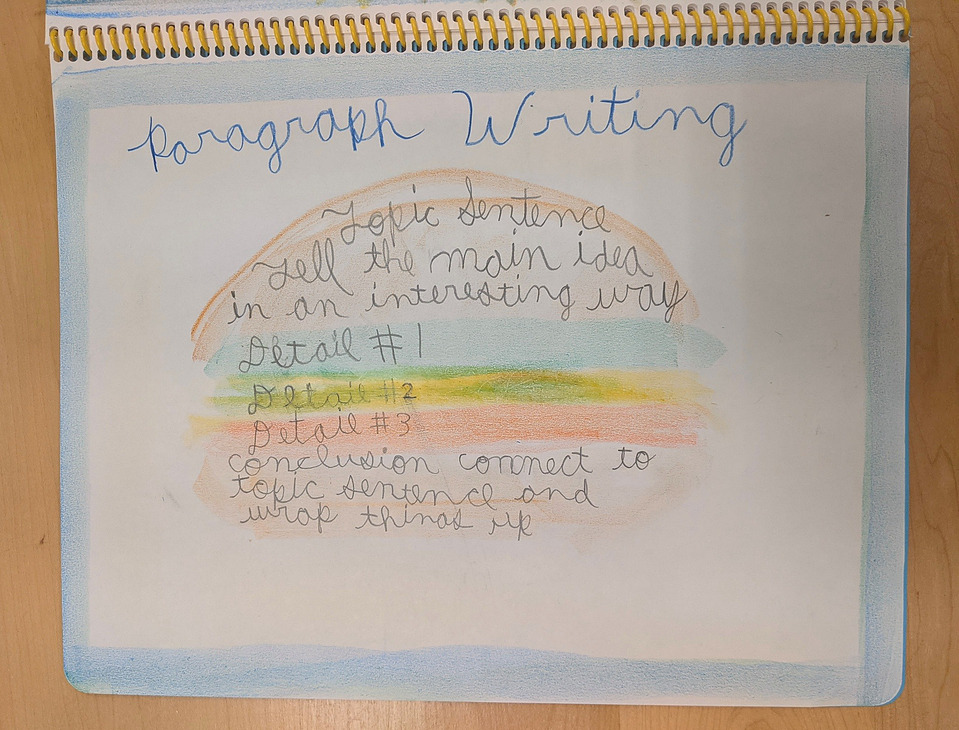 Paragraph Writing
Topic Sentence
Tell the main idea
in an interesting way
Detail #1
Detail #2
Detail #3
conclusion connect to
topic sentence and
wrap things up